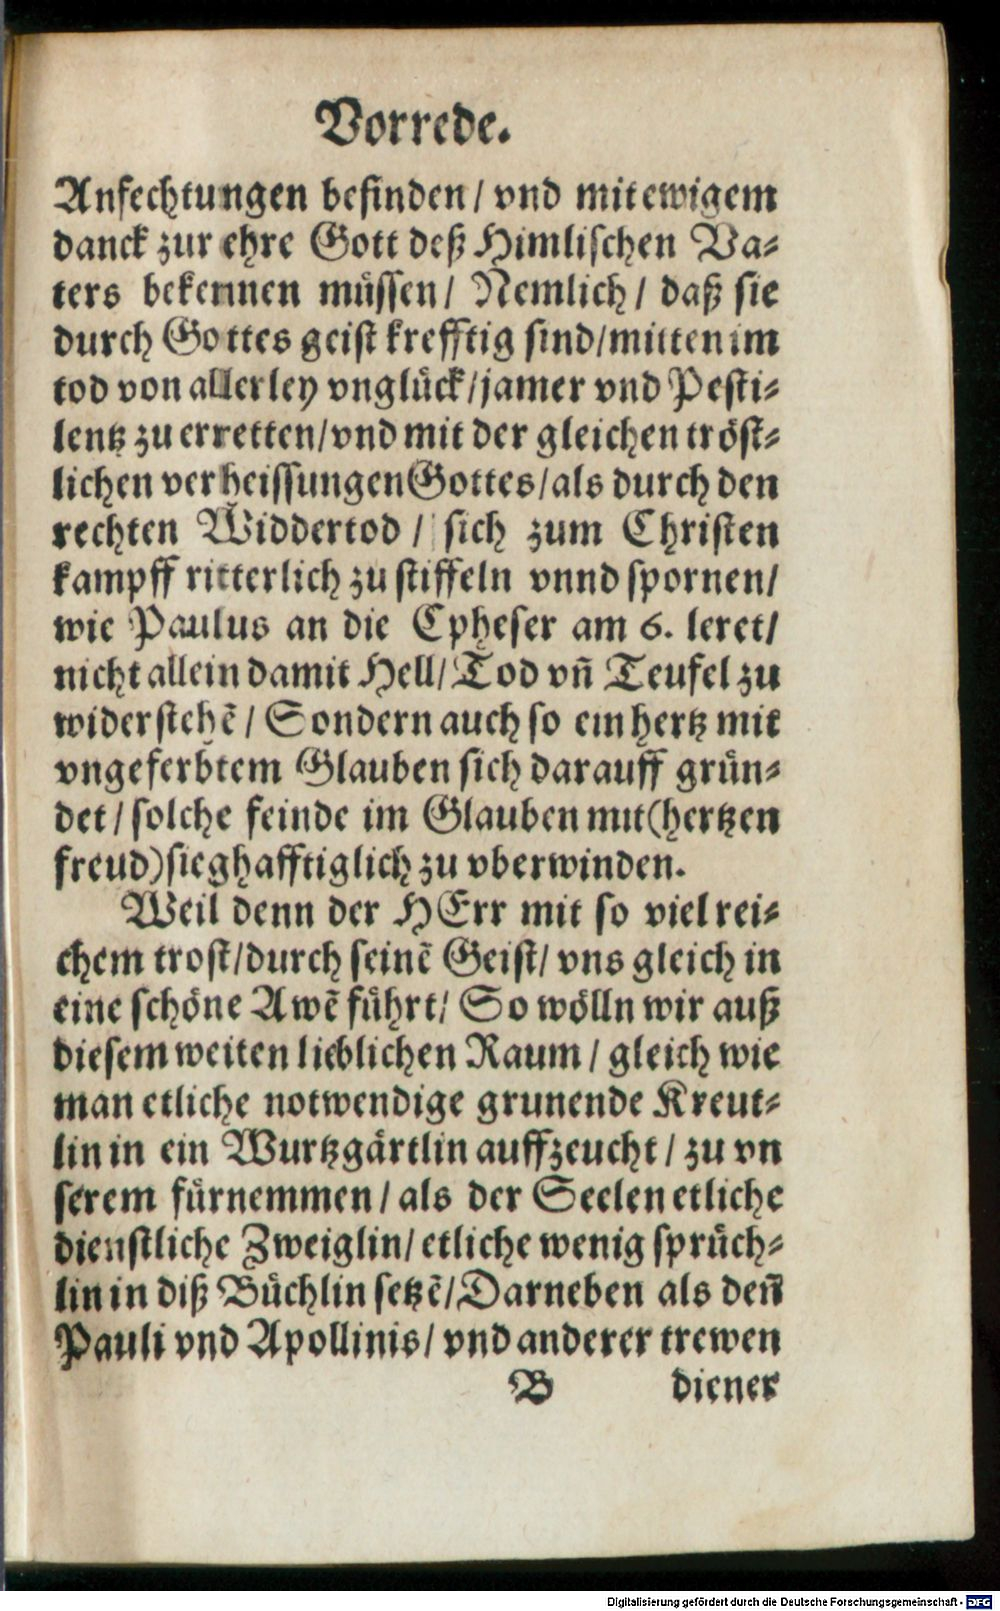 Vorrede.
Anfechtungen befinden / vnd mit ewigem
danck zur ehre Gott deß Himlischen Va-
ters bekennen müssen / Nemlich / daß sie
durch Gottes geist krefftig sind / mitten im
tod von allerley vnglück / jamer vnd Pesti-
lentz zu erretten / vnd mit der gleichen tröst-
lichen verheissungen Gottes / als durch den
rechten Widdertod / sich zum Christen
kampff ritterlich zu stiffeln vnnd spornen /
wie Paulus an die Epheser am 6. leret /
nicht allein damit Hell / Tod vñ Teufel zu
widerstehē / Sondern auch so ein hertz mit
vngeferbtem Glauben sich darauff grün-
det / solche feinde im Glauben mit (hertzen
freud) sieghafftiglich zu vberwinden.
Weil denn der HErr mit so viel rei-
chem trost / durch seinē Geist / vns gleich in
eine schöne Awē führt / So wölln wir auß
diesem weiten lieblichen Raum / gleich wie
man etliche notwendige grunende Kreut-
lin in ein Wurtzgärtlin auffzeucht / zu vn
serem fürnemmen / als der Seelen etliche
dienstliche Zweiglin / etliche wenig sprüch-
lin in diß Büchlin setzē / Darneben als deñ
Pauli vnd Apollinis / vnd anderer trewen
B diener
Digitalisierung gefördert durch die Deutsche Forschungsgemeinschaft - DFG